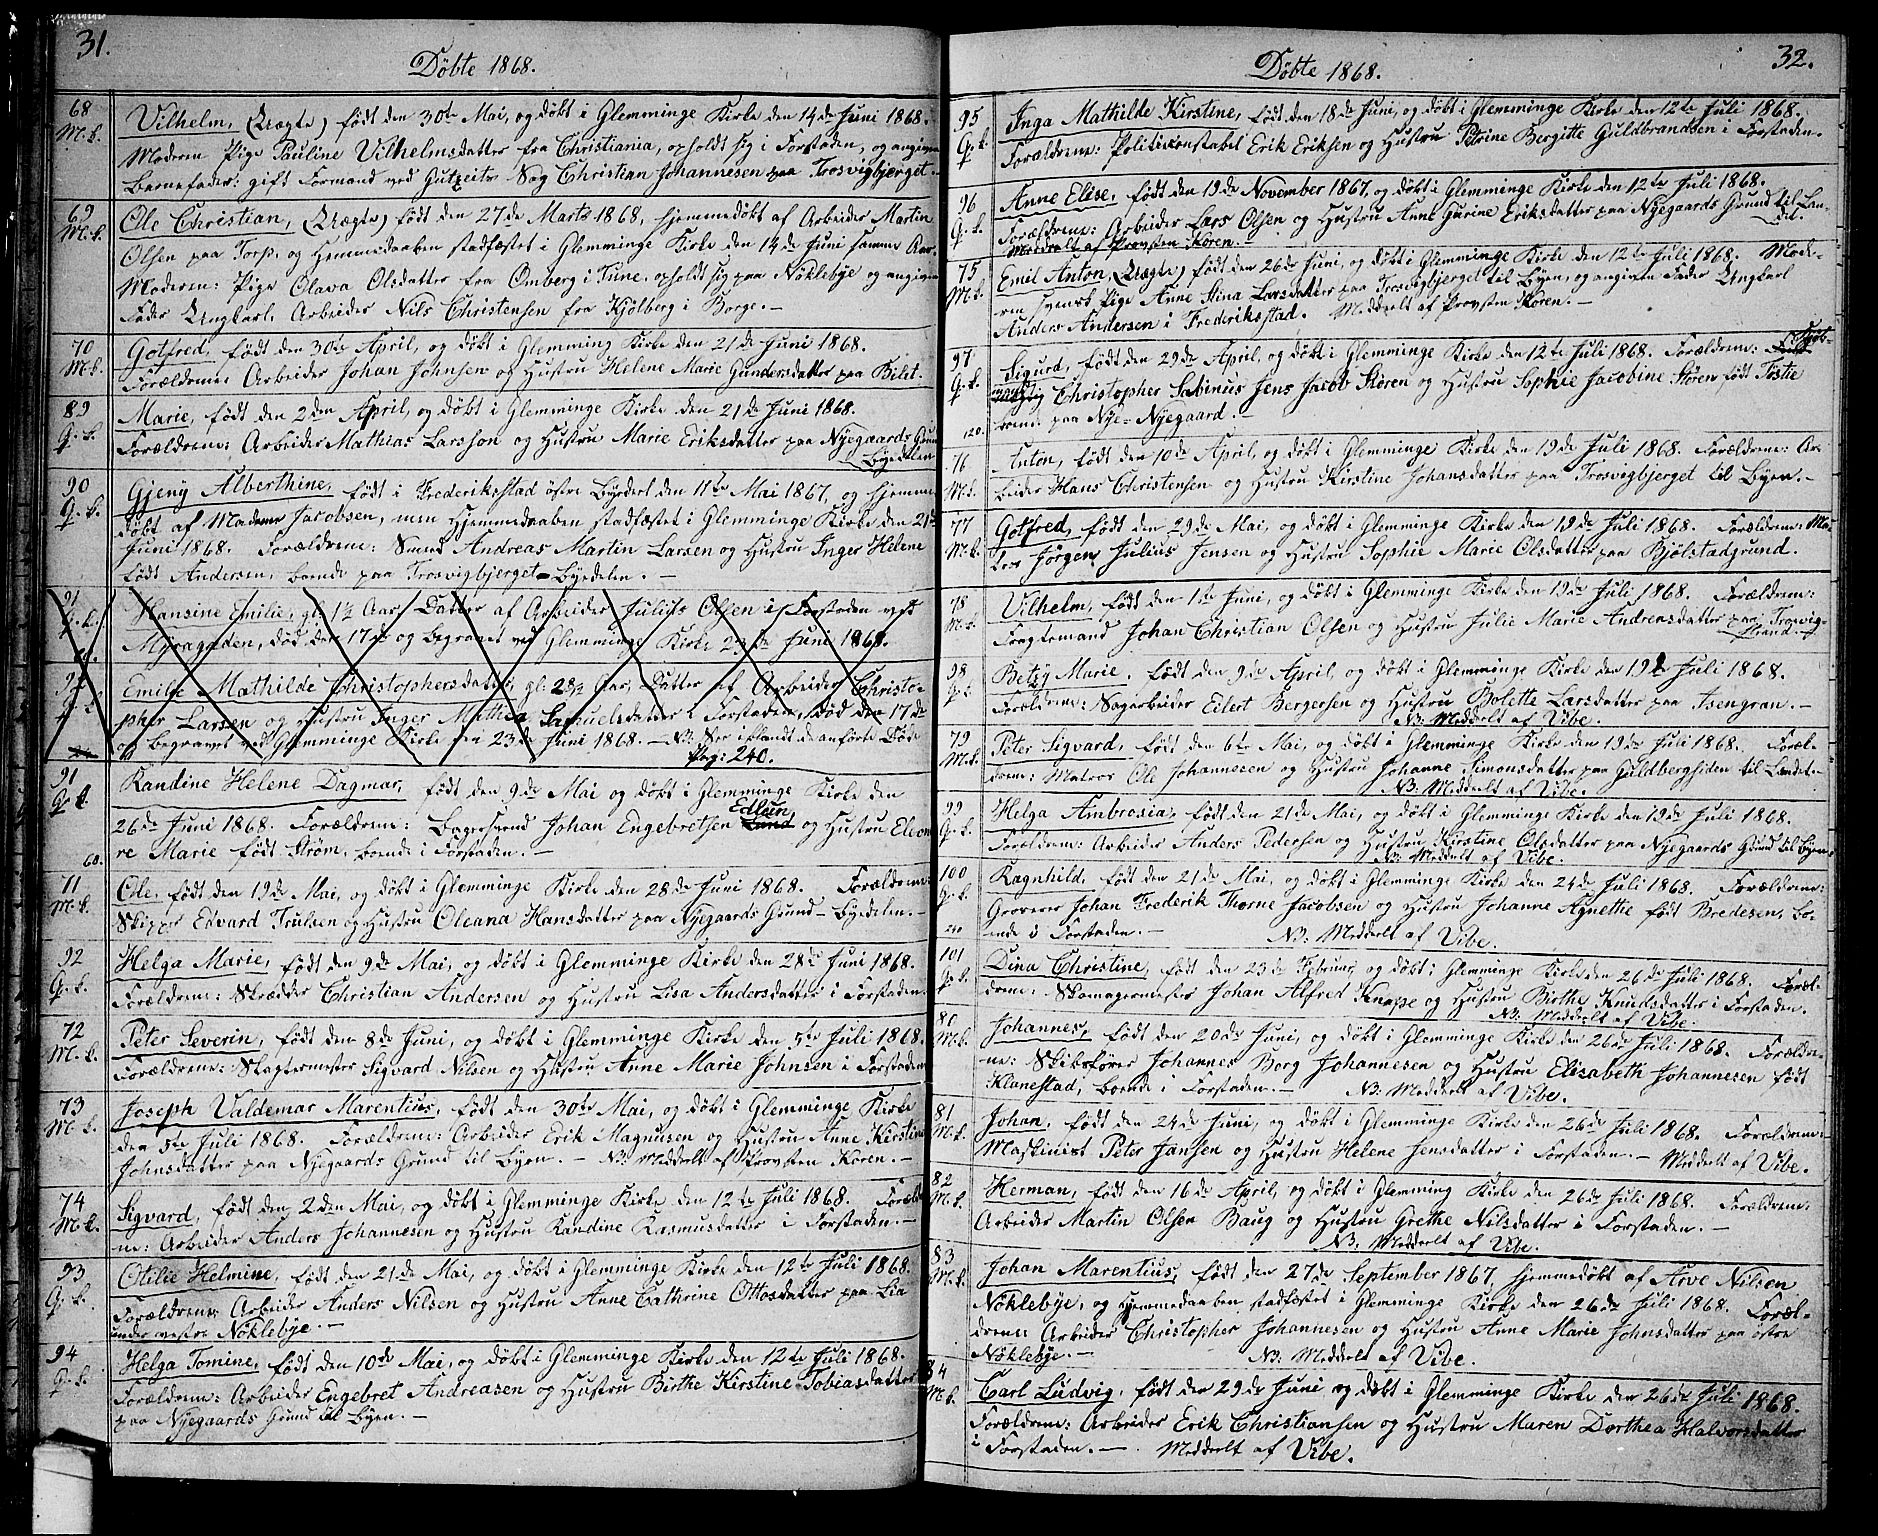 31.
Döbte 1868.
68
M.k.
Vilhelm, (Uægte) født den 30te Mai, og døbt i Glemminge Kirke den 14de Juni 1868.
Moderen Pige Pauline Vilhelmsdatter fra Christiania, opholdt sig i Forstaden, og angiven
Barnefader: gift Formand ved Gutzeits Sag Christian Johannesen paa Trosvigbjerget.
69
M.k.
Ole Christian, (Uægte) født den 27de Marts 1868, hjemmedøbt af Arbeider Martin
Olsen paa Torp, og Hemmedaaben stadfæstet i Glemminge Kirke den 14de Juni samme Aar.
Moderen: Pige Olava Olsdatter fra Omberg i Tune, opholdt sig paa Nöklebye og angiven
Fader Ungkarl Arbeider Nils Christensen fra Kjölberg i Borge.-
70
M.k.
Gotfred, født den 30te April, og døbt i Glemming Kirke den 21de Juni 1868.
Forældrene: Arbeider Johan Johnsen og Hustru Helene Marie Gundersdatter paa Bilit.
89
Q.k.
Marie, født den 2den April, og døbt i Glemminge Kirke den 21de Juni 1868.
Forældrene: Arbeider Mathias Larsson og Hustru Marie Eriksdatter paa Nyegaards Grund
Byedelen
90
Q.k.
Gjeny Alberthine, født i Frederiksstad östre Byedeel den 11te Mai 1867, og hjemme
døbt af Madame Jacobsen, men Hjemmedaaben stadfæstet i Glemminge Kirke den 21de
Juni 1868. Forældrene: Smed Andreas Martin Larsen og Hustru Inger Helene
født Andersen, boende paa Trosvigbjerget-Byedelen.-
91
Q.k.
Hansine Emilie, gl. 1½ Aar, Datter af Arbeider Julius Olsen i Forstaden ved
Myragaden, död den 17de og begravet ved Glemminge Kirke 23de Juni 1868.
92
Q.k.
Emilie Mathilde Christophersdatter, gl. 28½ Aar, Datter af Arbeider Christo-
pher Larsen og Hustru Inger Mathea Samuelsdatter i Forstaden, död den 17de
og begravet ved Glemminge Kirke den 23de Juni 1868. - NB: See iblandt de anførte Döde
Pag: 240.
91
Q.k.
Kandine Helene Dagmar, født den 9de Mai og døbt i Glemminge Kirke den
26de Juni 1868. Forældrene: Bagersvend Johan Engebretsen Lund Edlun og Hustru Eleono
re Marie født Ström, boende i Forstaden.-
60.
71
M.k.
Ole, født den 19de Mai, og døbt i Glemminge Kirke den 28de Juni 1868. Forældrene:
Skipper Edvard Trulsen og Hustru Oleana Hansdatter paa Nyegaards Grund-Byedelen.-
92
Q.k.
Helga Marie, født den 9de Mai, og døbt i Glemminge Kirke den 28de Juni 1868.
Forældrene: Skrædder Christian Andersen og Hustru Lisa Andersdatter i Forstaden.
72
M.k.
Peter Severin, født den 8de Juni, og døbt i Glemminge Kirke den 5te Juli 1868.
Forældrene: Slagtermester Sigvard Nilsen og Hustru Anne Marie Johnsen i Forstaden
73
M.k.
Joseph Valdemar Marentius, født den 30te Mai, og døbt i Glemminge Kirke
den 5te Juli 1868. Forældrene: Arbeider Erik Magnusen og Hustru Anne Kirstine
Johnsdatter paa Nyegaards Grund til Byen.- NB: Meddelt af Provsten Koren.-
74
M.k.
Sigvard, født den 2den Mai, og døbt i Glemminge Kirke den 12te Juli 1868. Foræld
ne: Arbeider Anders Johannesen og Hustru Kandine Rasmusdatter i Forstaden.-
93
Q.k.
Otilie Helmine, født den 21de Mai, og døbt i Glemminge Kirke den 12te Juli 1868.
Forældrene: Arbeider Anders Nilsen og Hustru Anne Cathrine Ottosdatter paa Lia
under vestre Nöklebye.-
94
Q.k.
Helga Tomine, født den 10de Mai, og døbt i Glemminge Kirke den 12te Juli 1868.
Forældrene: Arbeider Engebret Andreasen og Hustru Birthe Kirstine Tobiasdatter
paa Nyegaards Grund til Byen.-
32.
Döbte 1868.
95
Q.k.
Inga Mathilde Kirstine, født den 18de Juni, og døbt i Glemminge Kirke den 12te Juli 1868.
Forældrene: Politikonstabel Erik Eriksen og Hustru Petrine Bergitte Guldbrandsen i Forstaden.
96
Q.k.
Anne Elise, født den 19de November 1867, og døbt i Glemminge Kirke den 12te Juli 1868.
Forældrene: Arbeider Lars Olsen og Hustru Anne Gurine Eriksdatter paa Nyegaards Grund til Lan-
det.
Meddelt af Provsten Koren.-
75
M.k.
Emil Anton, (Uægte) født den 26de Juni, og døbt i Glemminge Kirke den 12te Juli 1868. Mode-
ren svensk Pige Anne Stina Larsdatter paa Trosvigbjerget til Byen, og angiven Fader Ungkarl
Anders Andersen i Frederiksstad. Meddelt af Provsten Koren.-
97
Q.k.
Sigurd, født den 29de April, og døbt i Glemminge Kirke den 12te Juli 1868. Forældrene: Kjöb-
mand Christopher Sabinius Jens Jacob Stören og Hustru Sophie Jacobine Stören født Tostie
boende paa Nye-Nyegaard.-
120.
76
M.k.
Anton, født den 10de April, og døbt i Glemminge Kirke den 19de Juli 1868. Forældrene: Ar-
beider Hans Christensen og Hustru Kirstine Johansdatter paa Trosvigbjerget til Byen.-
77
M.k.
Gotfred, født den 29de Mai, og døbt i Glemminge Kirke den 19de Juli 1868. Forældrene: Ma-
tros Jörgen Julius Jensen og Hustru Sophie Marie Olsdatter paa Bjölstadgrund.
78
M.k.
Vilhelm, født den 1ste Juni, og døbt i Glemminge Kirke den 19de Juli 1868. Forældrene:
Fragtemand Johan Christian Olsen og Hustru Julie Marie Andreasdatter paa Trosvig-
Strand.-
98
Q.k.
Betzy Marie, født den 9de April, og døbt i Glemminge Kirke den 19de Juli 1868.
Forældrene: Sagarbeider Eilert Bergersen og Hustru Bolette Larsdatter paa Isengran.-
NB: Meddelt af Vibe.
79
M.k.
Peter Sigvard, født den 6te Mai, og døbt i Glemminge Kirke den 19de Juli 1868. Foræl-
drene: Matros Ole Johannesen og Hustru Johanne Simonsdatter paa Guldbergsiden til Landet.-
NB: Meddelt af Vibe.
99
Q.k.
Helga Ambrosia, født den 21de Mai, og døbt i Glemminge Kirke den 19de Juli 1868.
Forældrene: Arbeider Anders Pedersen og Hustru Kirstine Olsdatter paa Nyegaards Grund til Byen.
NB: Meddelt af Vibe.
100
Q.k.
Ragnhild, født den 21de Mai, og døbt i Glemminge Kirke den 24de Juli 1868. Forældrene:
Graverer Johan Frederik Thorne Jacobsen og Hustru Johanne Agnethe født Bredesen, bo-
ende i Forstaden.- NB: Meddelt af Vibe.
240
101
Q.k.
Dina Christine, født den 23de Februar, og døbt i Glemminge Kirke den 26de Juli 1868. Foræl-
drene: Skomagermester Johan Alfred Knape og Hustru Birthe Knudsdatter i Forstaden.
NB: Meddelt af Vibe.
80
M.k.
Johannes, født den 20de Juni, og døbt i Glemminge Kirke den 26de Juli 1868. Forældre-
ne: Skibsfører Johannes Borg Johannesen og Hustru Elisabeth Johannesen født
Klanestad, boende i Forstaden.- NB: Meddelt af Vibe.
81
M.k.
Johan, født den 24de Juni, og døbt i Glemminge Kirke den 26de Juli 1868. Forældrene:
Maskinist Peter Jansen og Hustru Helene Jensdatter i Forstaden.- Meddelt af Vibe.
82
M.k.
Herman, født den 16de April, og døbt i Glemming Kirke den 26de Juli 1868. Forældrene:
Arbeider Martin Olsen Baug og Hustru Grethe Nilsdatter i Forstaden.-
NB: Meddelt af Vibe.
83
M.k.
Johan Marentius, født den 27de September 1867, hjemmedøbt af Arve Nilsen
Nöklebye, og Hjemmedaaben stadfæstet i Glemminge Kirke den 26de Juli 1868. Foræl-
drene: Arbeider Christopher Johannesen og Hustru Anne Marie Johnsdatter paa östre
Nöklebye.- NB: Meddelt af Vibe.
84
M.k.
Carl Ludvig, født den 29de Juni og døbt i Glemminge Kirke den 26de Juli 1868.
Forældrene: Arbeider Erik Christiansen og Hustru Maren Dorthea Halvorsdatter
i Forstaden.- Meddelt af Vibe.